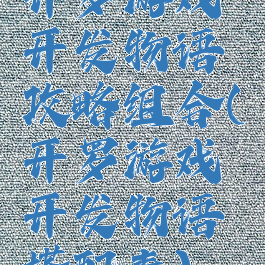 开罗游戏
开发物语
攻略组合(
开罗游戏
开发物语
搭配表)